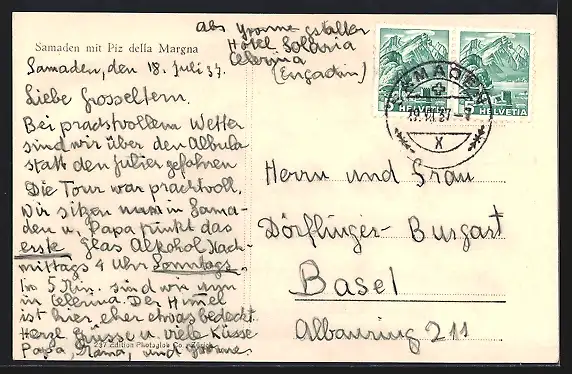 abs Yvonne Gstalter
Hotel Solaria
Celerina
(Engadin)
Samaden mit Piz della Margna
Samaden, den 18. Juli 37.
Liebe Grosseltern.
Bei prachtvollem Wetter
sind wir über den Albula
statt den Julier gefahren
Die Tour war prachtvoll.
Wir sitzen nun in Sama-
den u. Papa trinkt das
erste Glas Alkohol Nach-
mittags 4 Uhr Sonntags.
In 5 Min. sind wir nun
in Celerina. Der Himel
ist hier eher etwas bedeckt
Herzl Grüsse u. viele Küsse
Papa, Mama, und Yvonne.
237 Edition Photoglob Co., Zürich
HELVETIA
HELVETIA
SAMADEN
19.VII.37-7
X
Herrn und Frau
Dörflinger-Burgart
Basel
Albanring 211